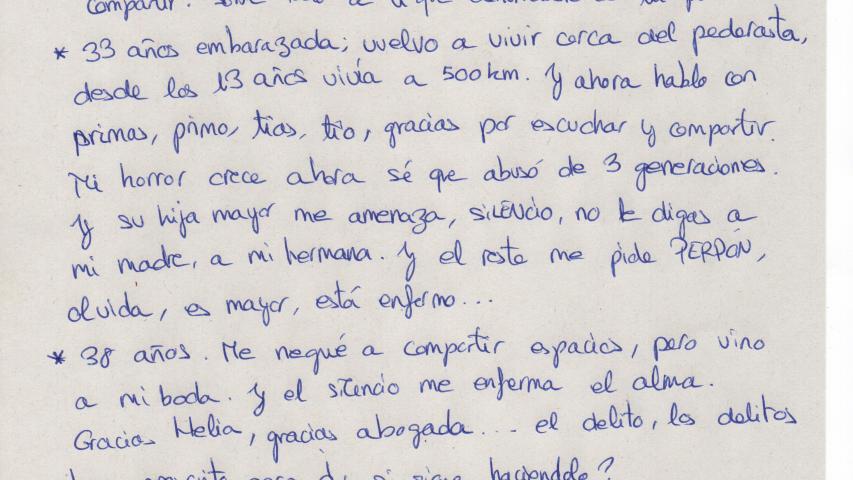 compartir.
* 33 años embarazada; vuelvo a vivir cerca del pederasta,
desde los 13 años vivía a 500 km. Y ahora hablo con
primas, primo, tías, tío, gracias por escuchar y compartir.
Mi horror crece ahora sé que abusó de 3 generaciones.
Y su hija mayor me amenaza, SILENCIO, no le digas a
mi madre, a mi hermana. Y el resto me pide PERDÓN,
olvida, es mayor, está enfermo...
* 38 años. Me negué a compartir espacios, pero vino
a mi boda. Y el silencio me enferma el alma.
Gracias Helia, gracias abogada... el delito, los delitos
si sigue haciéndolo?